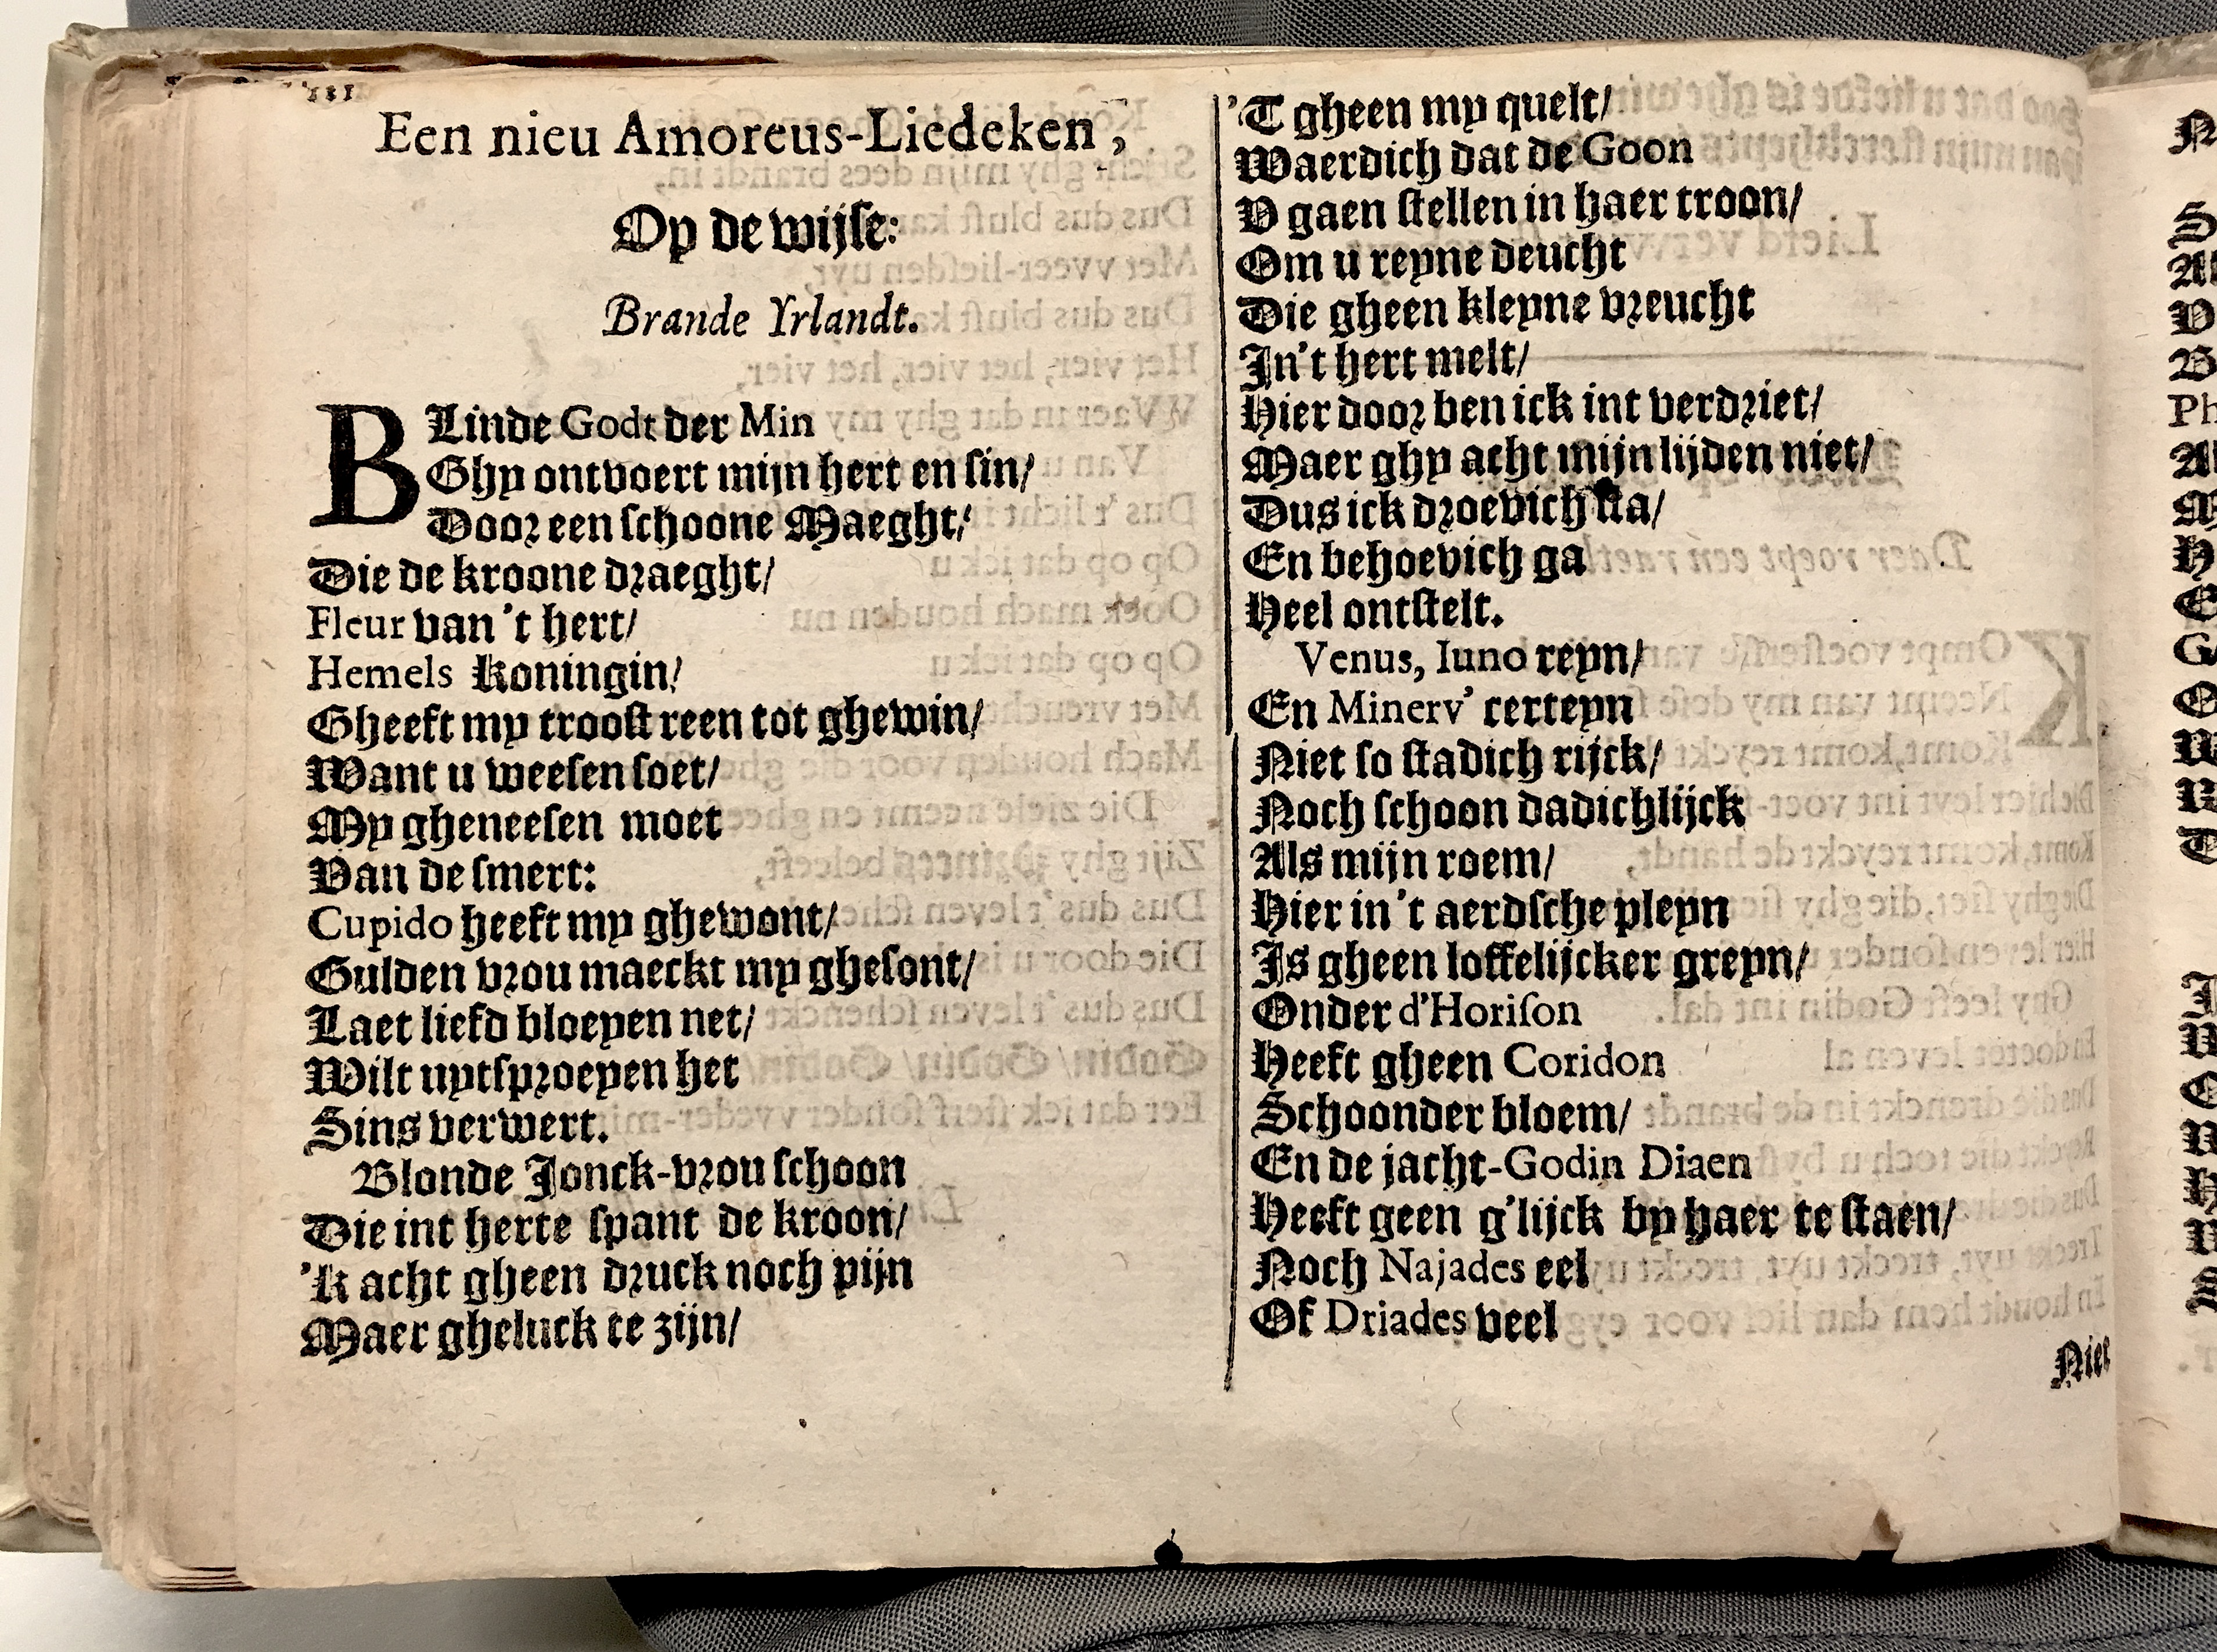 Een nieu Amoreus-Liedeken,
Op de wijſe:
Brande Yrlandt.
BLinde Godt der Min
Ghy ontvoert mijn hert en ſin/
Door een ſchoone Maeght/
Die de kroone draeght/
Fleur van 't hert/
Hemels koningin/
Gheeft my trooſt reen tot ghewin/
Want u weeſen ſoet/
My gheneeſen moet
Van de ſmert:
Cupido heeft my ghewont/
Gulden vrou maeckt my gheſont/
Laet liefd bloeyen net/
Wilt uytſproeyen het
Sins verwert.
Blonde Jonck-vrou ſchoon
Die int herte ſpant de kroon/
'k acht gheen druck noch pijn
Maer gheluck te zijn/
'T gheen my quelt/
Waerdich dat de Goon
V gaen ſtellen in haer troon/
Om u reyne deucht
Die gheen kleyne vreucht
In't hert melt/
Hier door ben ick int verdriet/
Maer ghy acht mijn lijden niet/
Dus ick droevich ſta/
En behoevich ga
Heel ontſtelt.
Venus, Iuno reyn/
En Minerv' certeyn
Niet ſo ſtadich rijck/
Noch ſchoon dadichlijck
Als mijn roem/
Hier in 't aerdſche pleyn
Is gheen loffelijcker greyn/
Onder d'Horiſon
Heeft gheen Coridon
Schoonder bloem/
En de jacht-Godin Diaen
Heeft geen g'lijck by haer te ſtaen/
Noch Najades eel
Of Driades veel
Niet